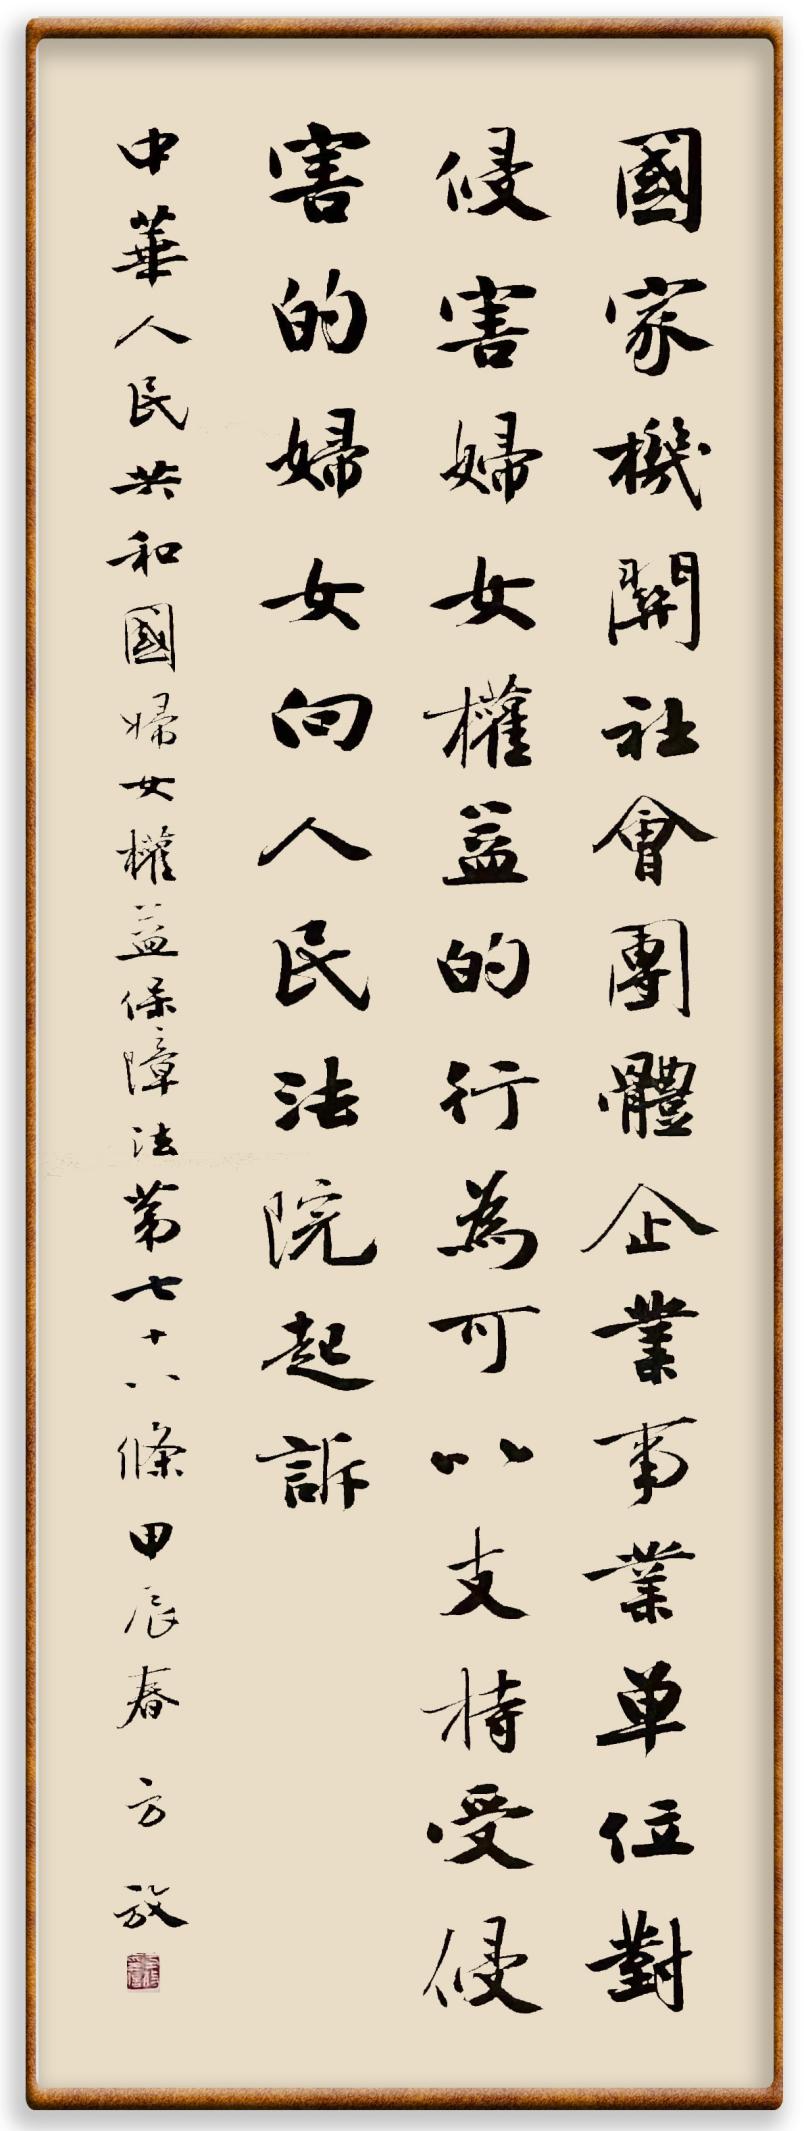 國家機關社會團體企業事業单位對
侵害婦女權益的行為可以支持受侵
害的婦女向人民法院起訴
中華人民共和國婦女權益保障法第七十八條甲辰春 方放